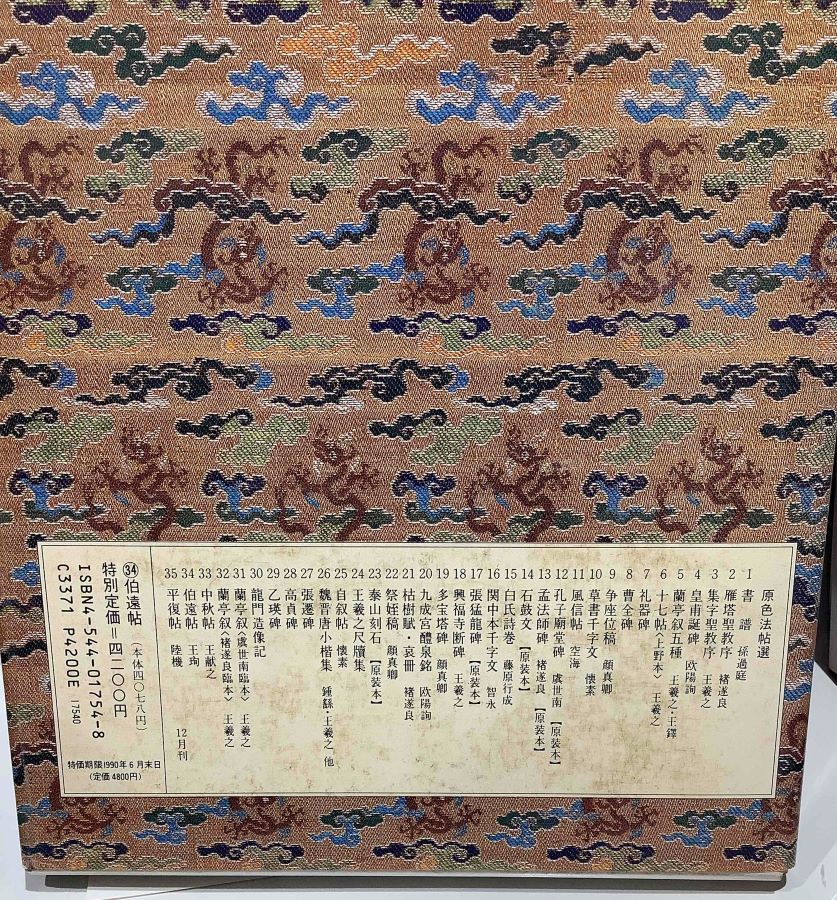 原色法帖選
1 書譜 孫過庭
2 雁塔聖教序 褚遂良
3 集字聖教序 王羲之
4 皇甫誕碑 欧陽詢
5 蘭亭叙五種 王羲之・王鐸
6 十七帖〈上野本〉 王羲之
7 礼器碑
8 曹全碑
9 争座位稿 顔真卿
10 草書千字文 懐素
11 風信帖 空海
12 孔子廟堂碑 虞世南【原装本】
13 孟法師碑 褚遂良【原装本】
14 石鼓文【原装本】
15 白氏詩巻 藤原行成
16 関中本千字文 智永
17 張猛龍碑【原装本】
18 興福寺断碑 王羲之
19 多宝塔碑 顔真卿
20 九成宮醴泉銘 欧陽詢
21 枯樹賦・哀冊 褚遂良
22 祭姪稿 顔真卿
23 泰山刻石【原装本】
24 王羲之尺牘集
25 自叙帖 懐素
26 魏晋唐小楷集 鍾繇・王羲之 他
27 張遷碑
28 高貞碑
29 乙瑛碑
30 龍門造像記
31 蘭亭叙〈虞世南臨本〉 王羲之
32 蘭亭叙〈褚遂良臨本〉 王羲之
33 中秋帖 王献之
34 伯遠帖 王珣
35 平復帖 陸機 12月刊
㉞伯遠帖（本体四〇七八円）
特別定価=四二〇〇円
ISBN4-544-01754-8
C3371 P4200E 17540
特価期限1990年6月末日
(定価4800円)